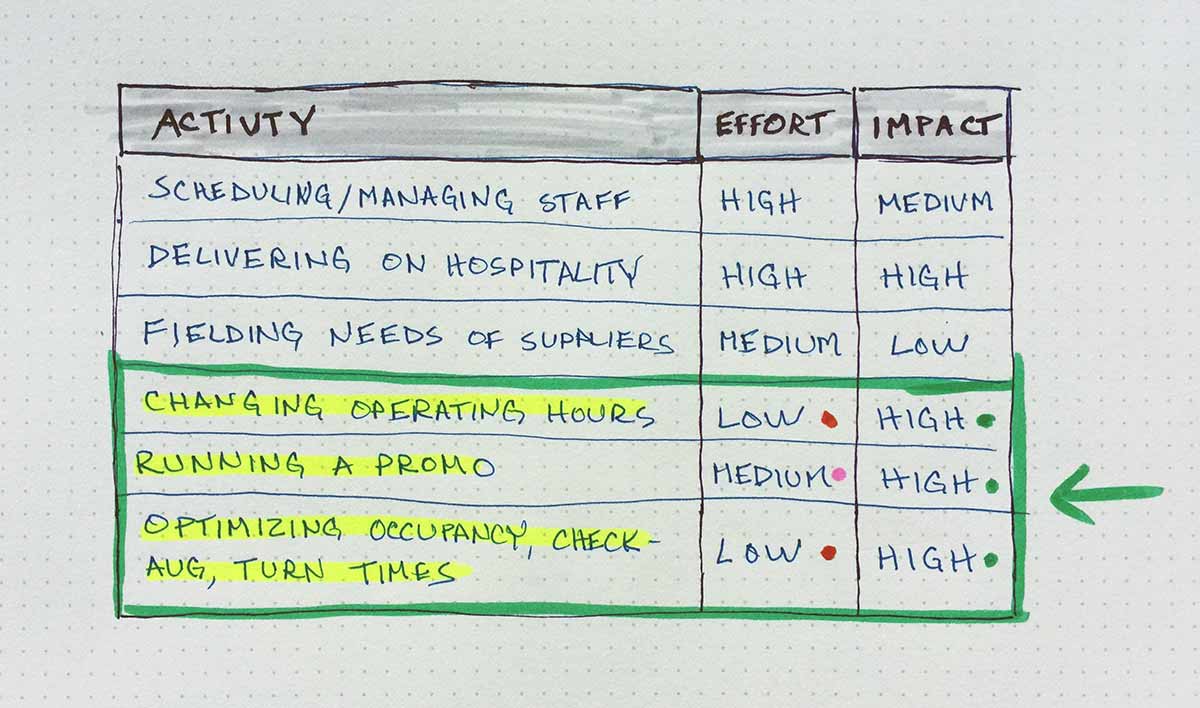 ACTIVTY EFFORT IMPACT
SCHEDULING/MANAGING STAFF HIGH MEDIUM
DELIVERING ON HOSPITALITY HIGH HIGH
FIELDING NEEDS OF SUPPLIERS MEDIUM LOW
CHANGING OPERATING HOURS LOW HIGH
RUNNING A PROMO MEDIUM HIGH
OPTIMIZING OCCUPANCY, CHECK- LOW HIGH
AUG, TURN TIMES